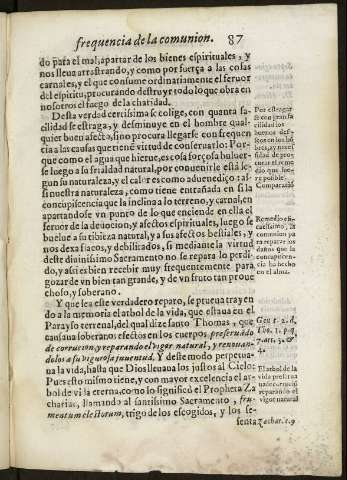 frequencia de la comunion. 87
do para el mal, apartar de los bienes espirituales, y
nos lleua arrastrando, y como por fuerça a las cosas
carnales, y el que consume ordinariamente el feruor
del espiritu, procurando destruyr todo lo que obra en
nosotros el fuego de la charidad.
Desta verdad certissima se colige, con quanta fa-
cilidad se estraga, y desminuye en el hombre qual-
quier buen afecto, sino procura llegarse con frequen
cia a las causas que tienē virtud de conseruarlo: Por-
que como el agua que hierue, es cosa forçosa boluer-
se luego a su frialdad natural, por conuenirle esta se-
gun su naturaleza, y el calor es como aduenedizo: as-
si nuestra naturaleza, como tiene entrañada en si la
concupiscencia que la inclina a lo terreno, y carnal, en
apartandose vn punto de lo que enciende en ella el
feruor de la deuocion, y afectos espirituales, luego se
buelue a su tibieza natural, y a sus afectos bestiales, y
nos dexa flacos, y debilitados, si mediante la virtud
deste diuinissimo Sacramento no se repara lo perdi-
do, y assi es bien recebir muy frequentemente para
gozar de vn bien tan grande, y de vn fruto tan proue
choso, y soberano.
Y que sea este verdadero reparo, se prueua trayen
do a la memoria el arbol de la vida, que estaua en el
Parayso terrenal, del qual dize santo Thomas, que
causaua soberanos efectos en los cuerpos, preseruādo
de corrucion, y reparando el vigor natural, y renouan-
dolos a su vigurosa juuentud. Y deste modo perpetua-
ua la vida, hasta que Dios lleuaua los justos al Cielo:
Pues esto mismo tiene, y con mayor excelencia el ar-
bol de vida eterna, como lo significò el Propheta Za
charias, llamando al santissimo Sacramento, fru-
mentum electorum, trigo de los escogidos, y los se-
senta
Por estragar
se con gran fa
cilidad los
buenos
Comparaciō
Remedio efi-
cacissimo, la
comunion pa
ra reparar los
daños que la
concupiscen-
cia ha hecho
en el alma.
El arbol de la
vida preserua
reparando el
vigor natural
Zachar. c. 9